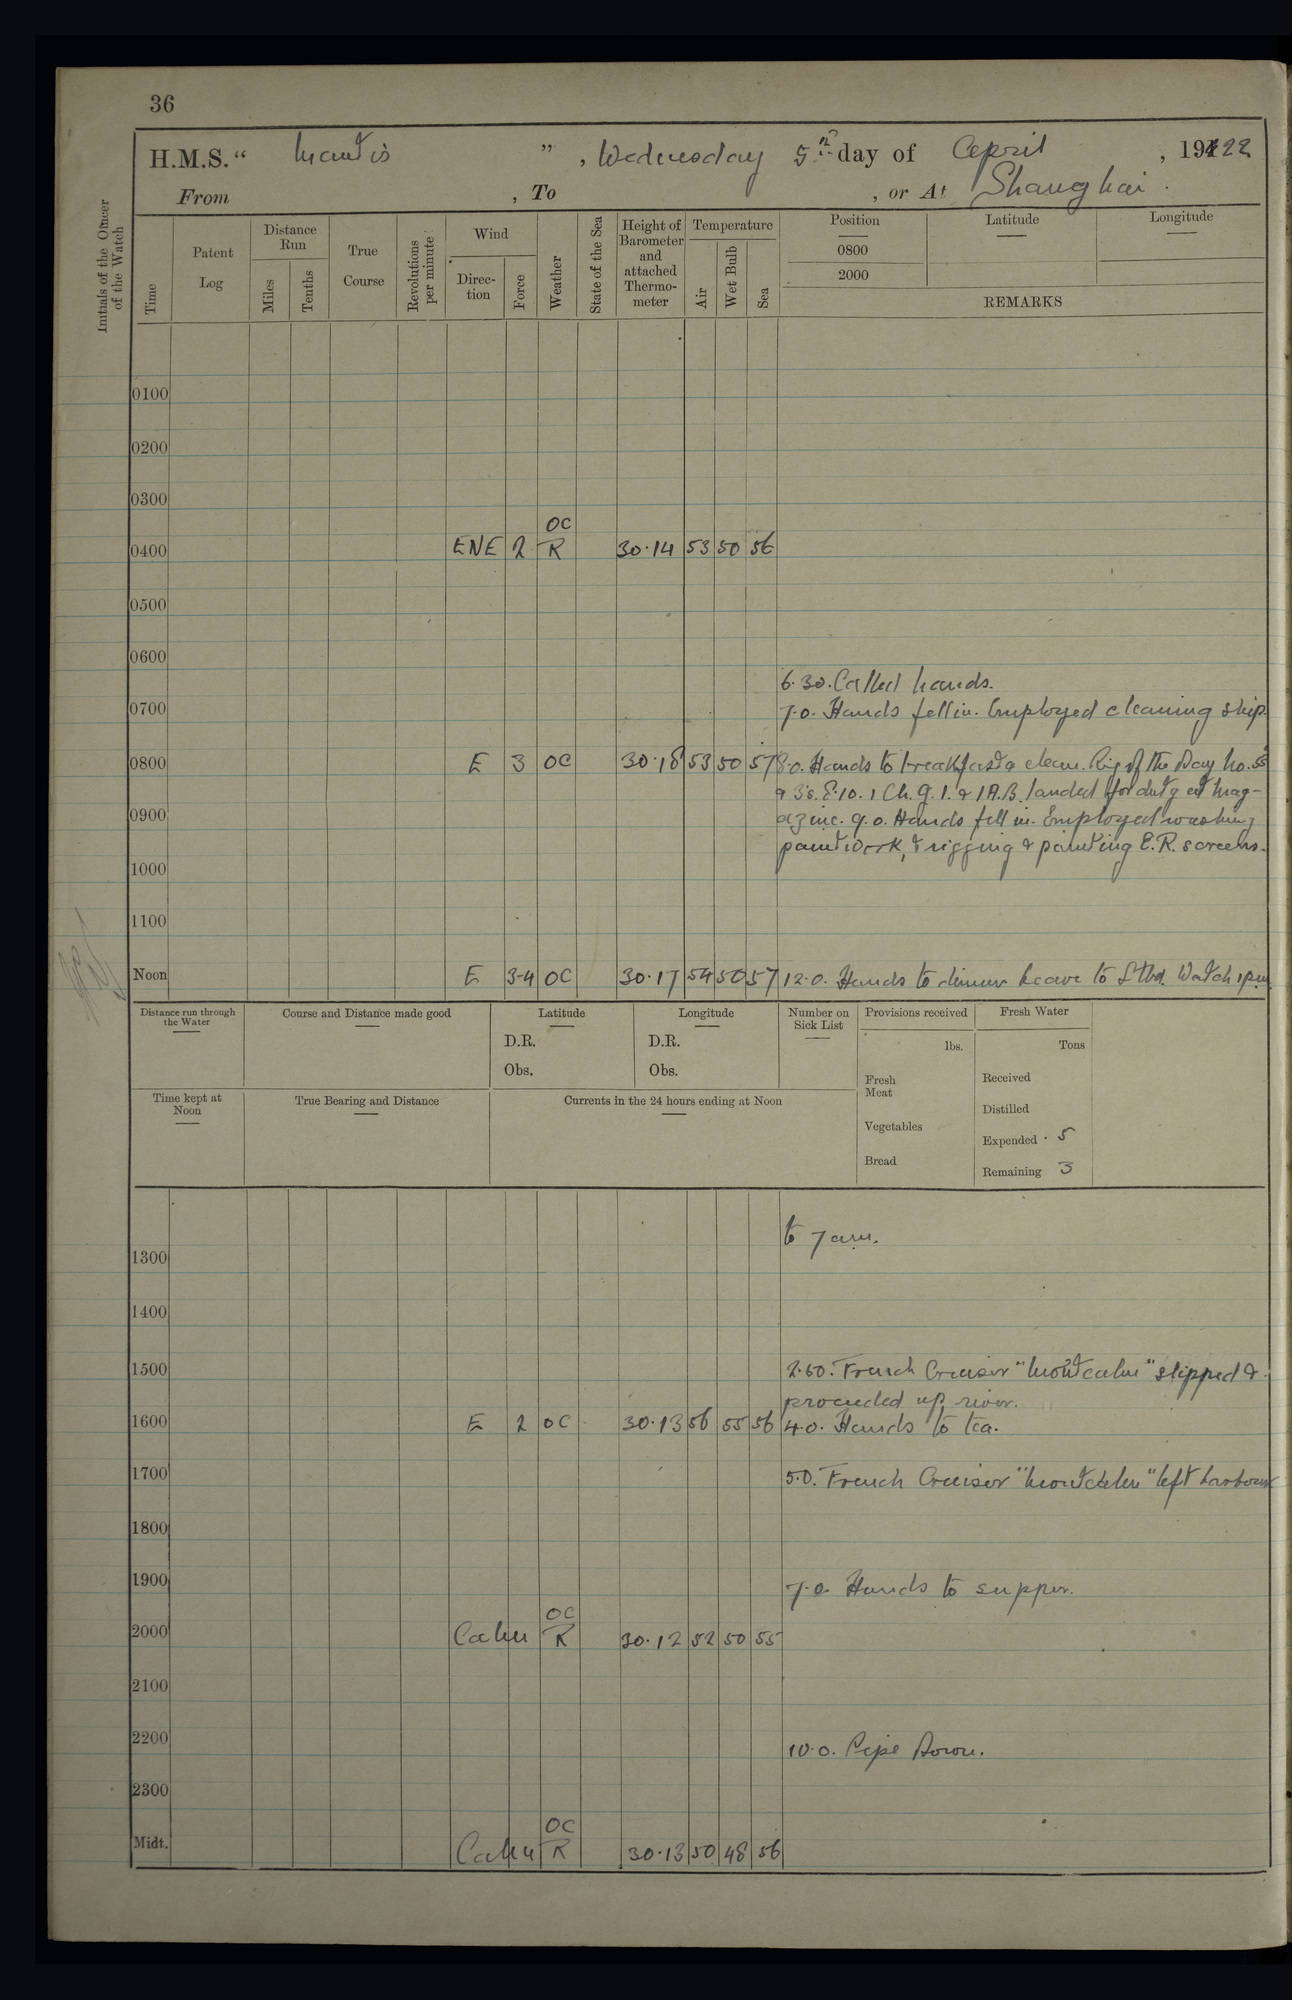 36
H.M.S. " Mantis ", Wednesday 5th day of April, 1922
From , To , or At Shanghai.
Initials of the Officer of the Watch
Time
Patent Log
Distance Run
Miles
Tenths
True Course
Revolutions per minute
Wind
Direction
Force
Weather
State of the Sea
Height of Barometer and attached Thermometer
Temperature
Air
Wet Bulb
Sea
Position
0800
2000
Latitude
Longitude
REMARKS
0100
0200
0300
0400 ENE 2 OC R 30.14 53 50 56
0500
0600
6.30. Called hands.
0700 7.0. Hands fell in. Employed cleaning ship.
0800 E 3 OC 30.18 53 50 57 8.0. Hands to breakfast & clean. Rig of the Day No. 5s
& 3s. 8.10. 1 Ch. G. 1. & 1 A.B. landed for duty at Mag-
0900 azine. 9.0. Hands fell in. Employed washing
paintwork, & rigging & painting E.R. screens.
1000
1100
Noon E 3-4 OC 30.17 54 50 57 12.0. Hands to dinner Leave to Stbd. Watch 1 p.m.
Distance run through the Water
Course and Distance made good
Latitude
D.R.
Obs.
Longitude
D.R.
Obs.
Number on Sick List
Provisions received
lbs.
Fresh Meat
Vegetables
Bread
Fresh Water
Tons
Received
Distilled
Expended . 5
Remaining 3
Time kept at Noon
True Bearing and Distance
Currents in the 24 hours ending at Noon
to 7 am.
1300
1400
1500 2.50. French Cruiser "Montcalm" slipped &
proceeded up river.
1600 E 2 OC 30.13 56 55 56 4.0. Hands to tea.
1700 5.0. French Cruiser "Montcalm" left harbour
1800
1900 7.0. Hands to supper.
2000 Calm OC R 30.12 52 50 55
2100
2200 10.0. Pipe Down.
2300
Midt. Calm OC R 30.13 50 48 56